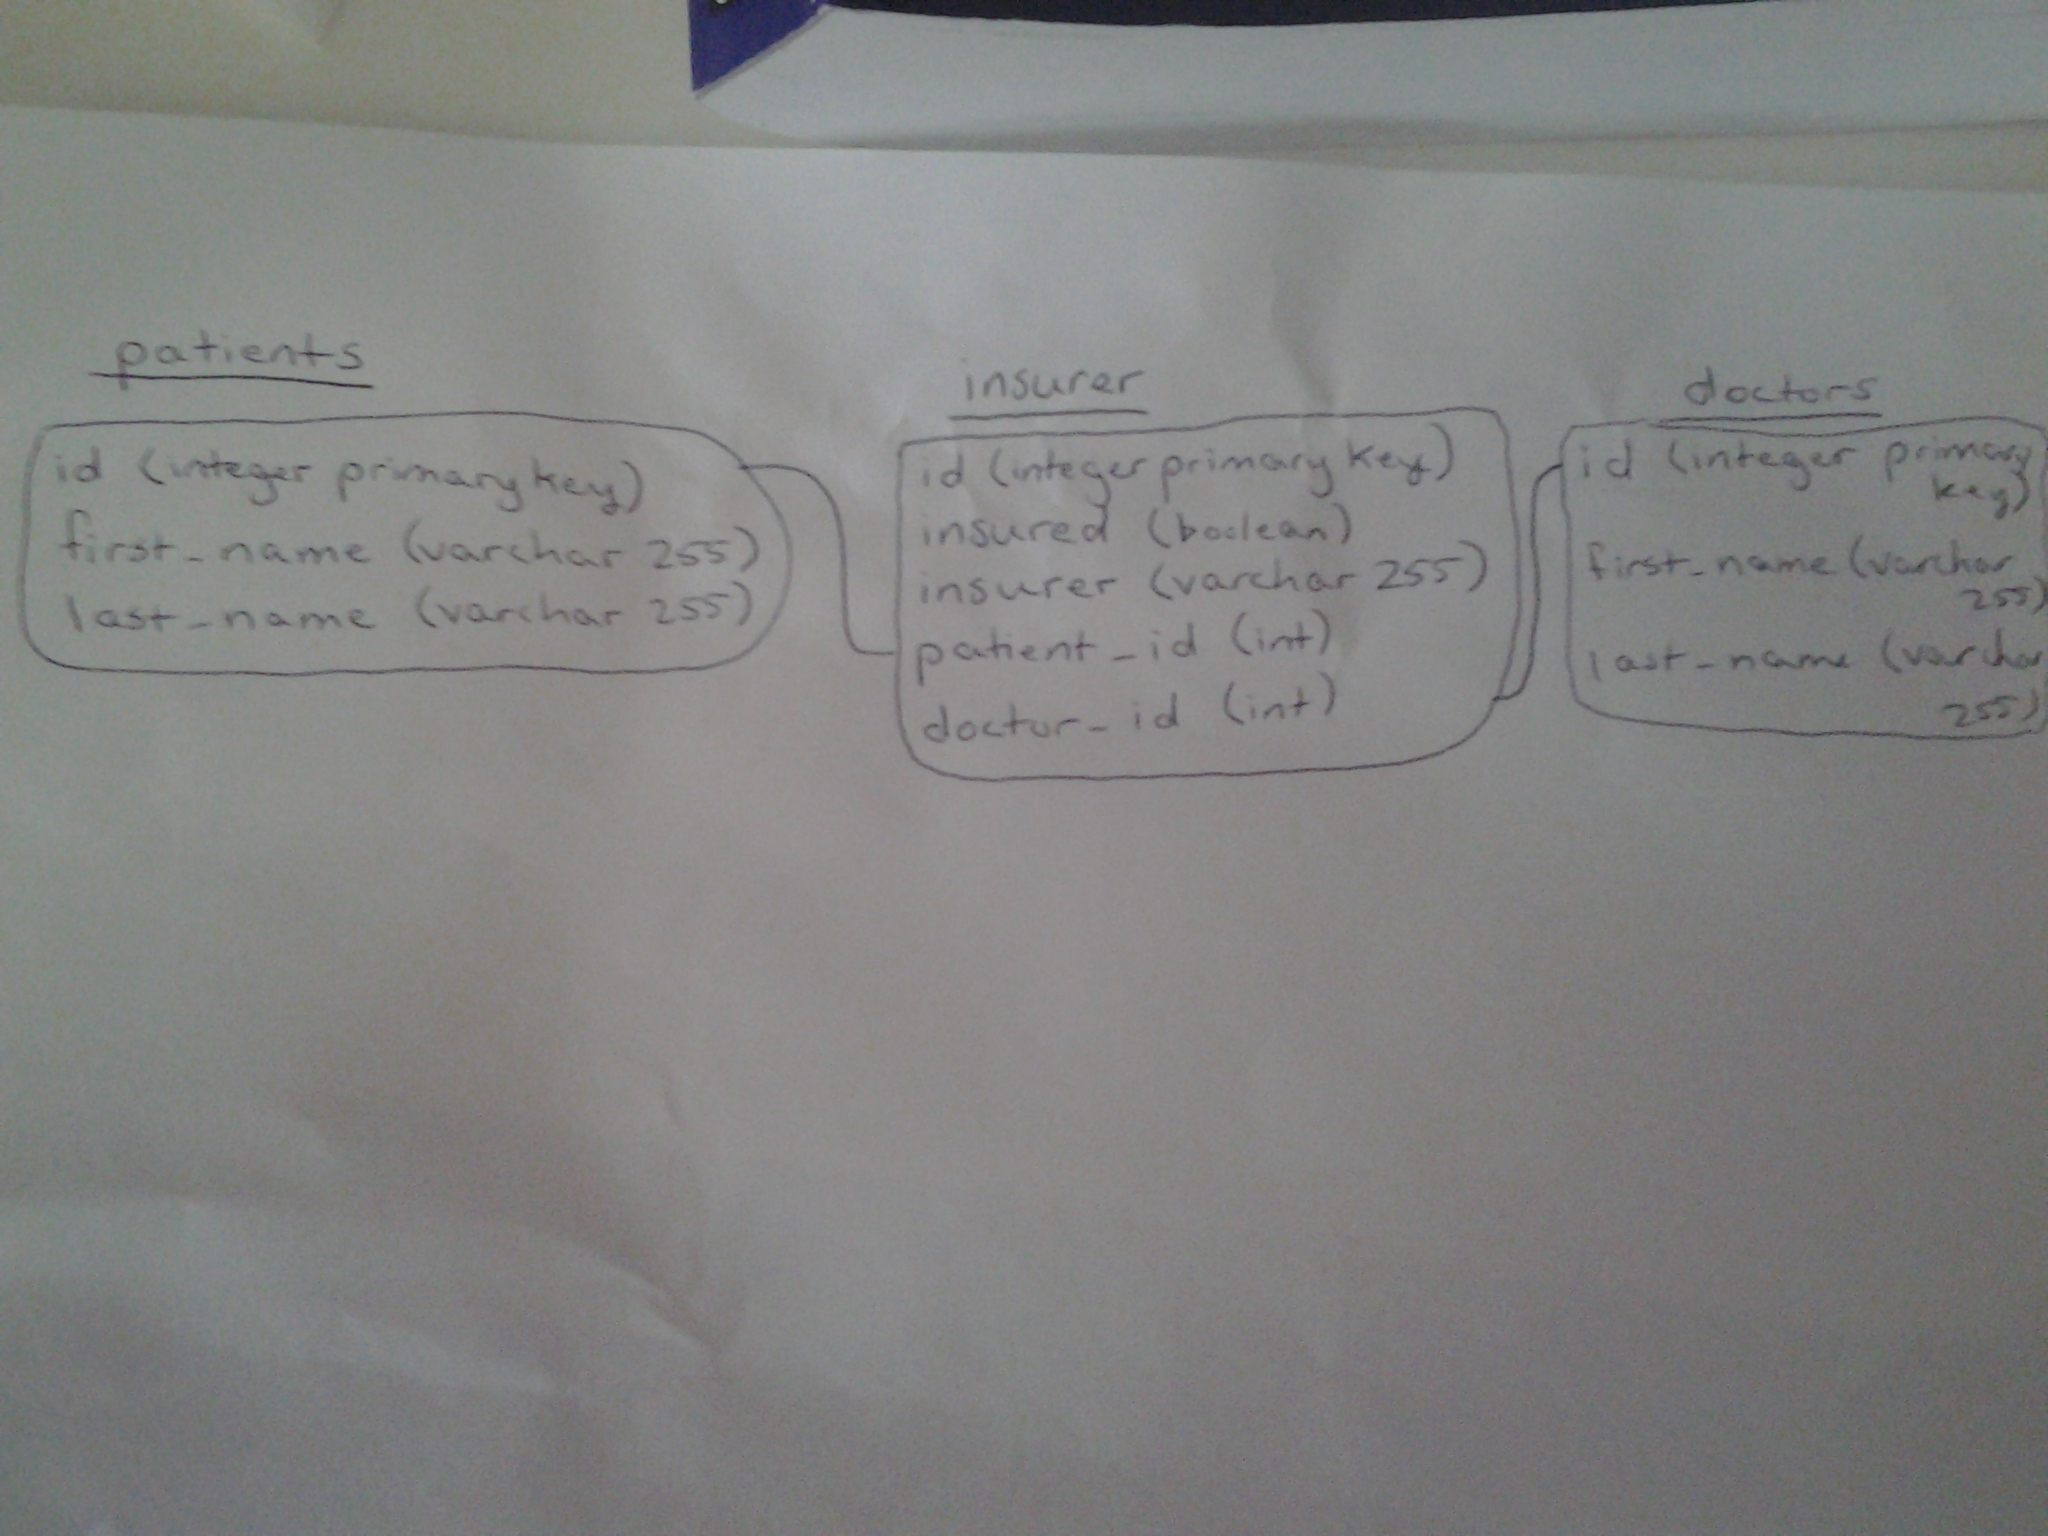 patients
id (integer primary key)
first_name (varchar 255)
last_name (varchar 255)
insurer
id (integer primary key)
insured (boolean)
insurer (varchar 255)
patient_id (int)
doctor_id (int)
doctors
id (integer primary
key)
first_name (varchar
255)
last_name (varchar
255)